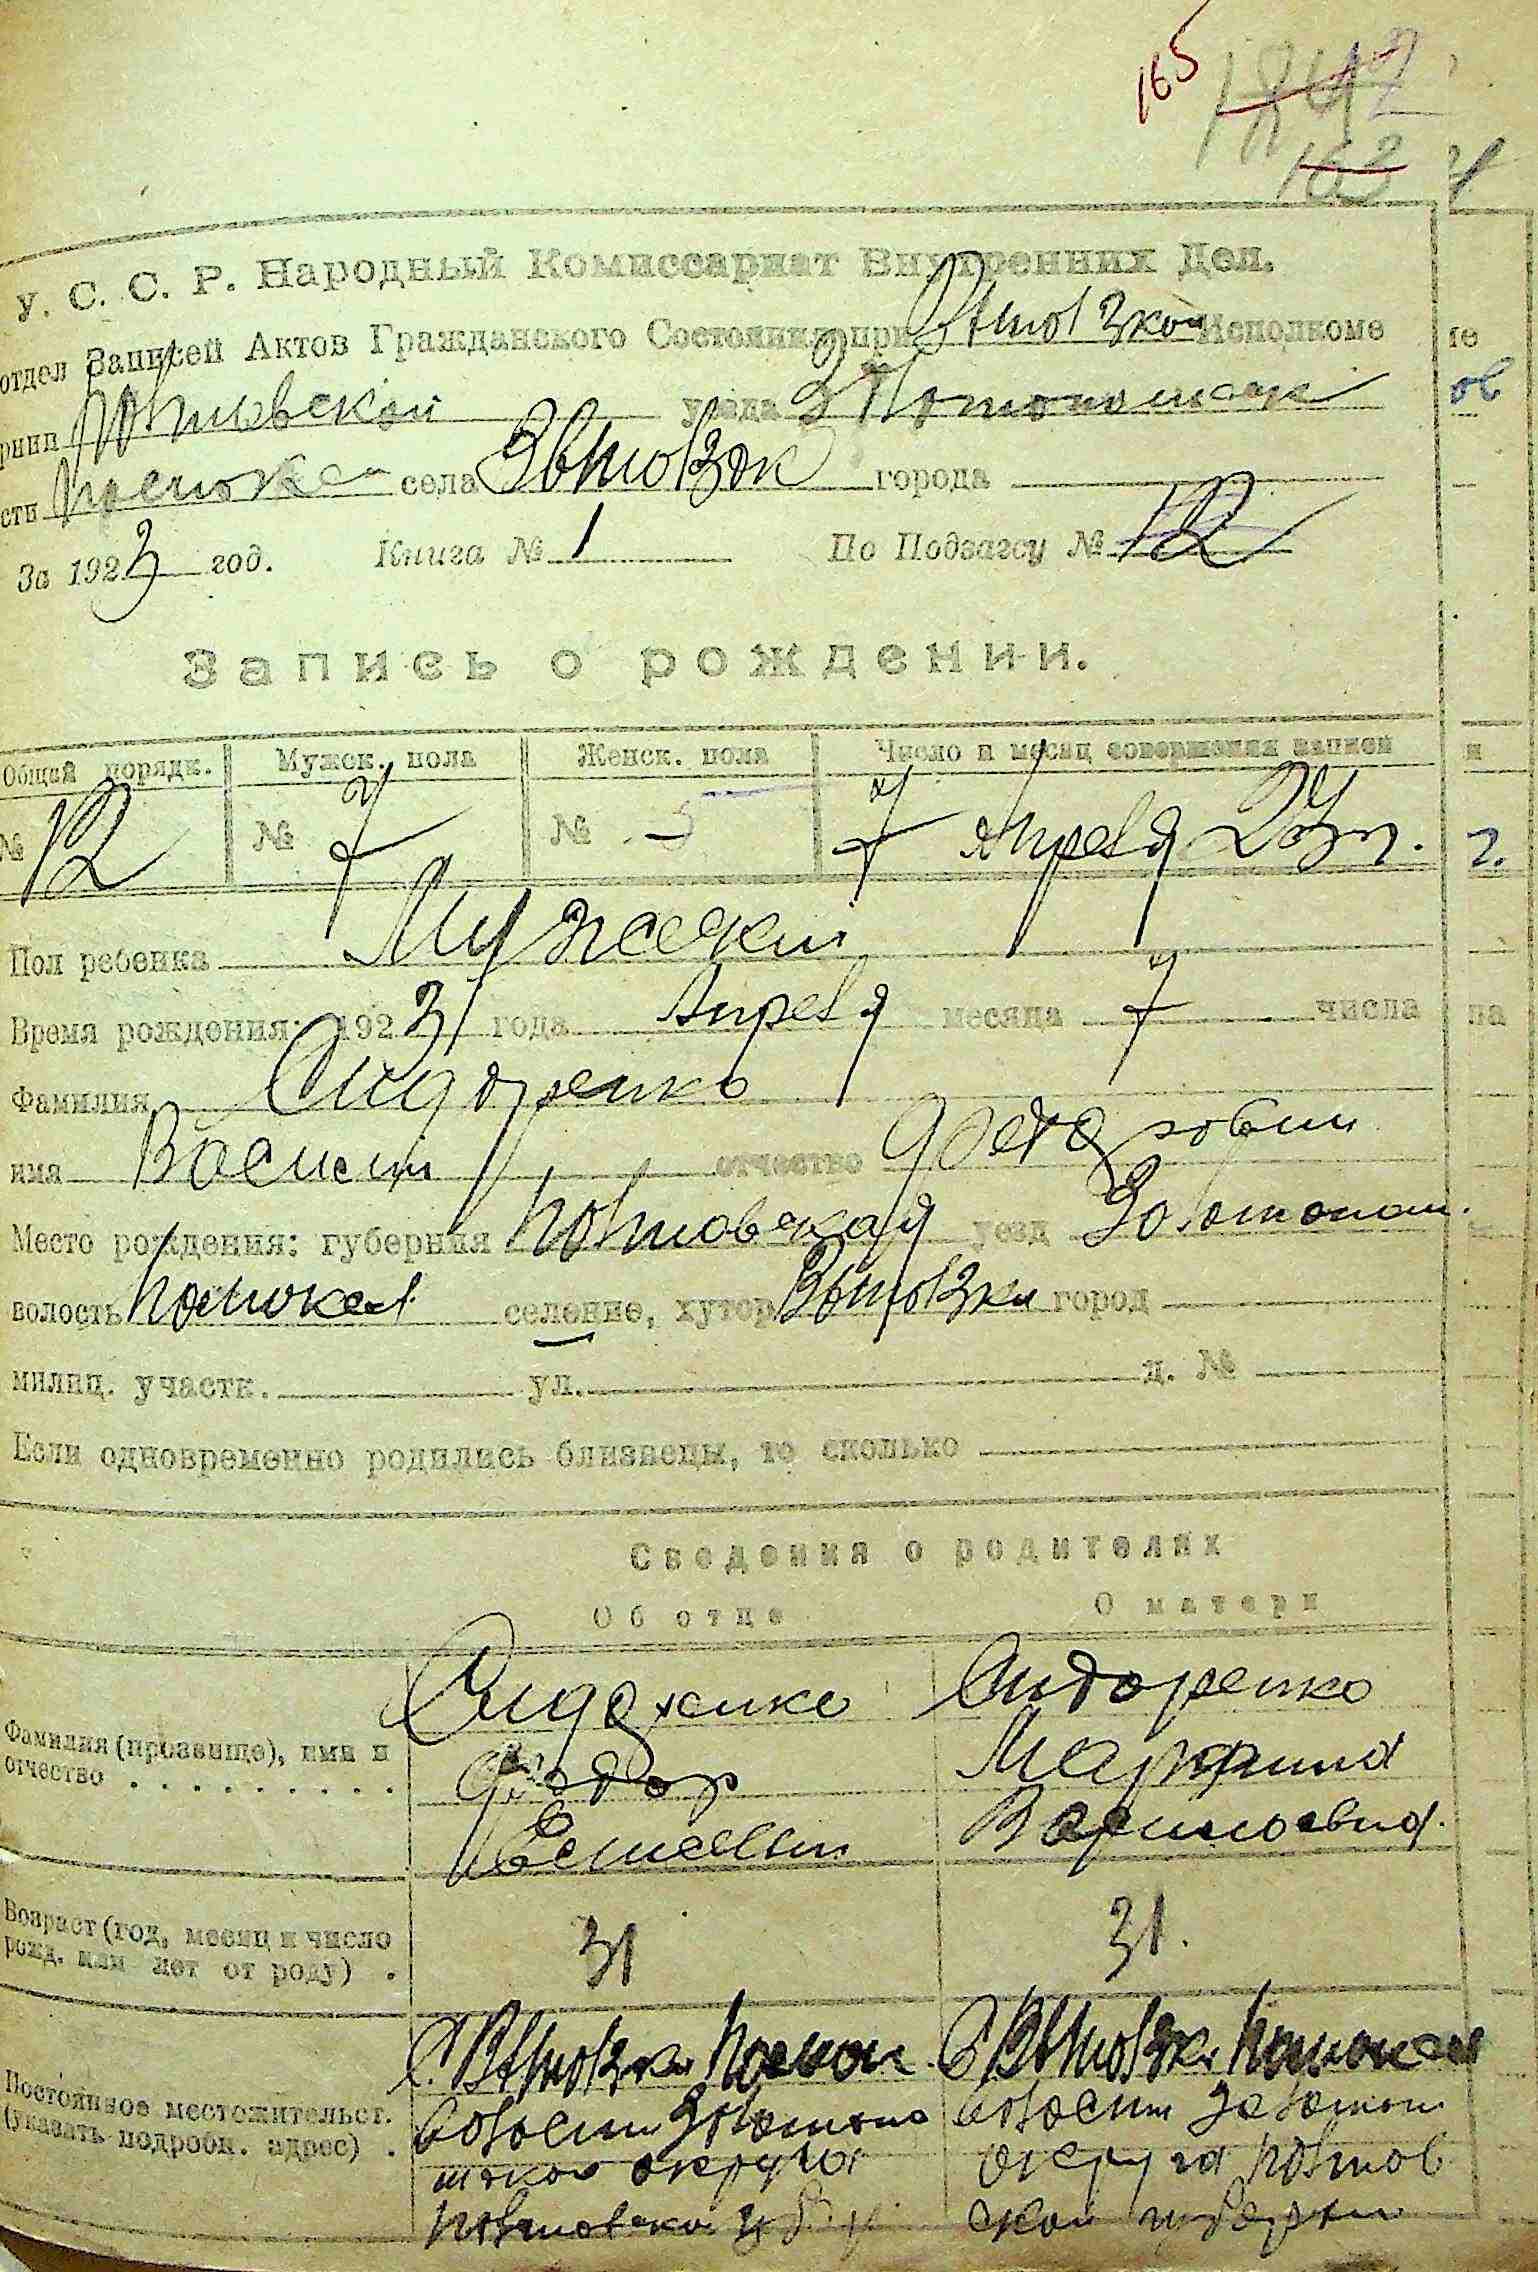 165 1847
163
У. С. С. Р. Народный Комиссариат Внутренних Дел.
отдел Записей Актов Гражданского Состояния при Исполкоме
рнии Полтавской уезда Золотоношск
сти села города
За 1923 год. Книга № 1 По Подзагсу № 12
Запись о рождении.
Общий порядк. Мужск. пола Женск. пола Число и месяц совершения записи
№ 12 № 7 № 7 Апреля 23 г.
Пол ребенка Мужеский
Время рождения: 1923 года Апреля месяца 7 числа
Фамилия Сидоренко
имя Василий отчество Федорович
Место рождения: губерния Полтавская уезд Золотонош.
волость селение, хутор город
милиц. участк. ул. д. №
Если одновременно родились близнецы, то сколько
Сведения о родителях
Об отце О матери
Фамилия (прозвище), имя и отчество Сидоренко Сидоренко
Федор
Васильевна
Возраст (год, месяц и число рожд. или лет от роду) 31 31.
Постоянное местожительст. (указать подробн. адрес)
волости Золотоно волости Золотон
шской округи округа Полтав
Полтавской губ. ской губернии